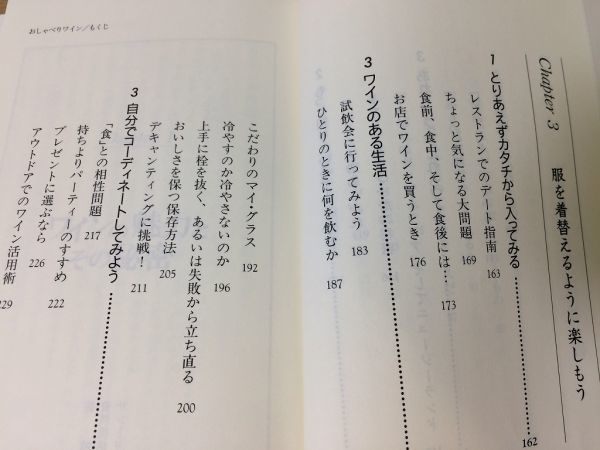 Chapter 3 服を着替えるように楽しもう
1 とりあえずカタチから入ってみる 162
レストランでのデート指南 163
ちょっと気になる大問題 169
食前、食中、そして食後には… 173
お店でワインを買うとき 176
3 ワインのある生活
試飲会に行ってみよう 183
ひとりのときに何を飲むか 187
おしゃべりワイン/もくじ
こだわりのマイ・グラス 192
冷やすのか冷やさないのか 196
上手に栓を抜く、あるいは失敗から立ち直る 200
おいしさを保つ保存方法 205
デキャンティングに挑戦! 211
3 自分でコーディネートしてみよう
「食」との相性問題 217
持ちよりパーティーのすすめ 222
プレゼントに選ぶなら 226
アウトドアでのワイン活用術 229